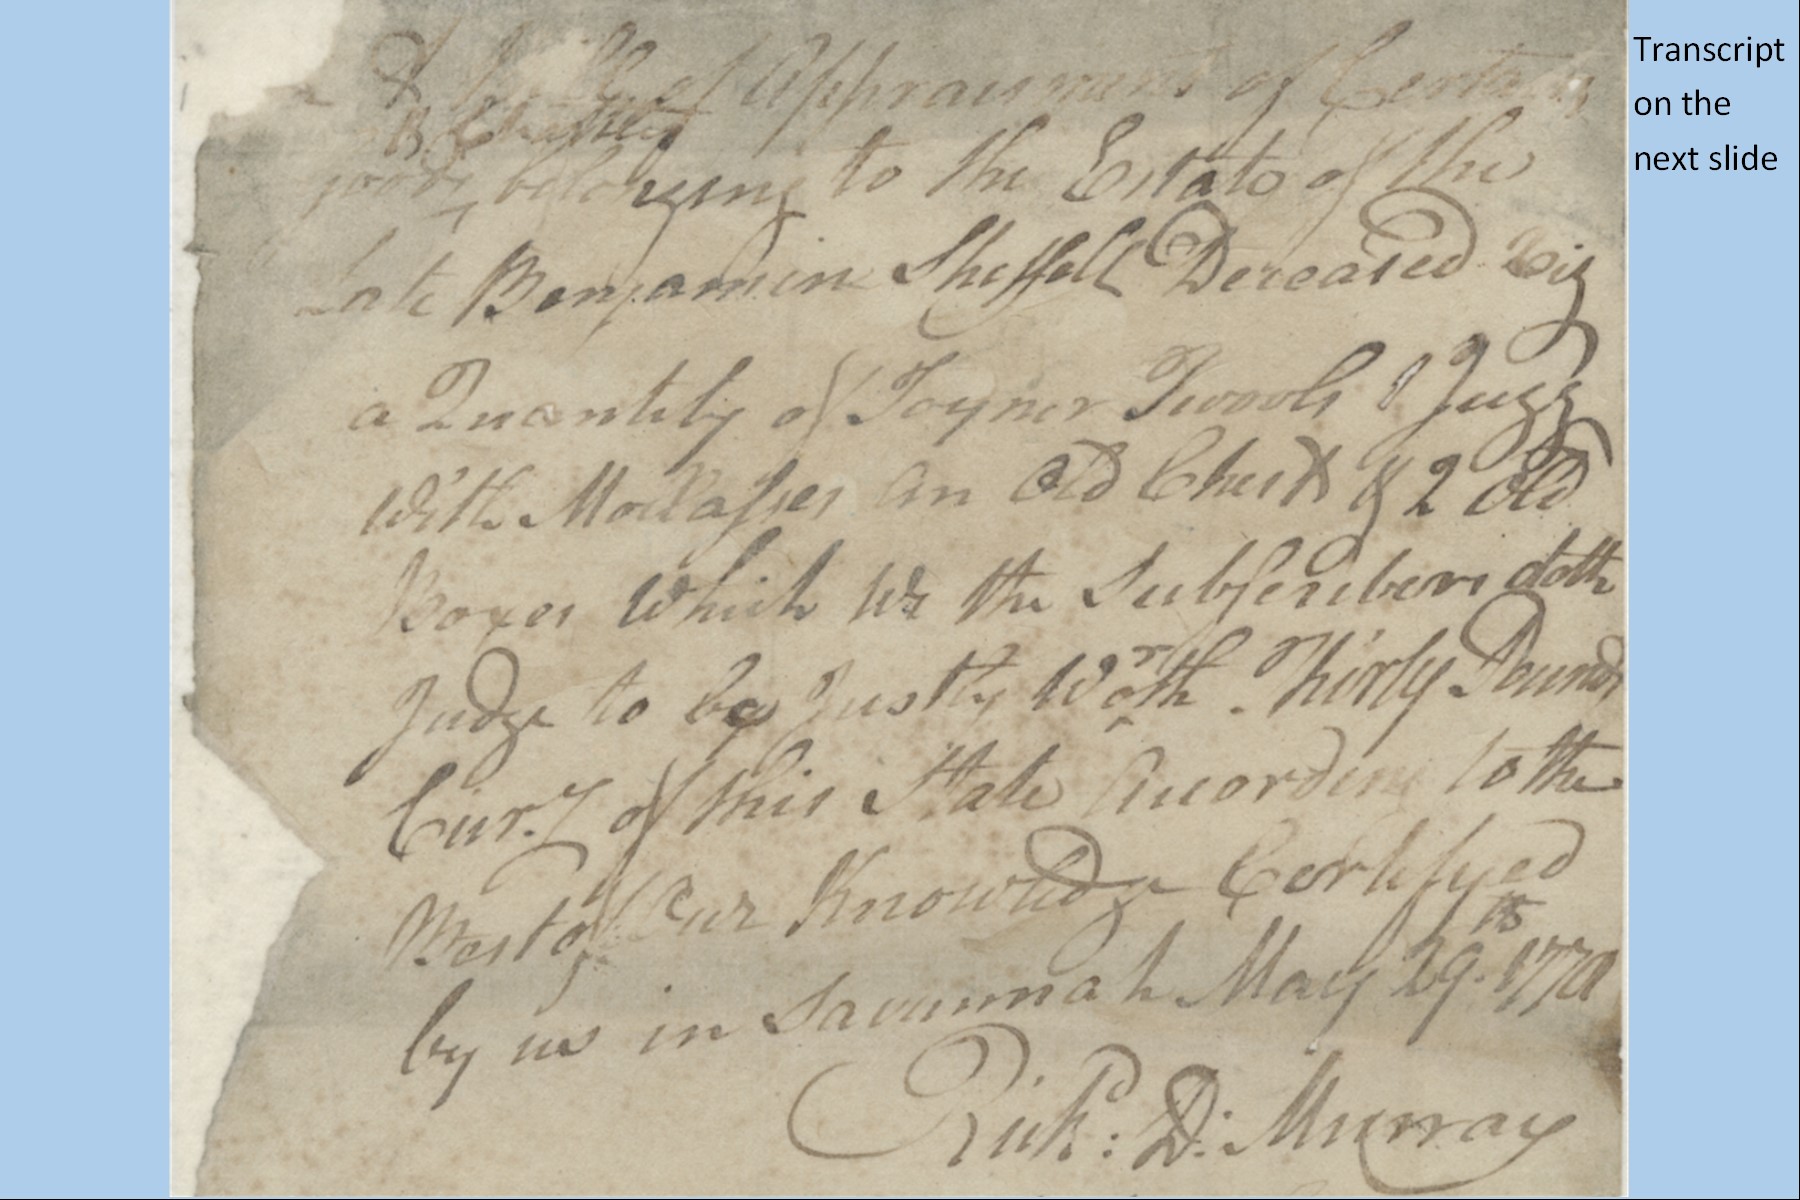 A Bill of Appraisment of Certain
& Chattles
goods belonging to the Estate of the
Late Benjamin Sheffell Deceased Viz
a Quantity of Joyner Twools 1 Jugg
With Mollasses an Old Chest & 2 Old
Boxes Which We the Subscribers doth
Judge to be Justly Worth Thirty Pounds
Cur.y of this State Acording to the
Best of Our Knowledge Certifyed
by us in Savannah May 29th 177
Richd: D: Murray
Transcript
on the
next slide